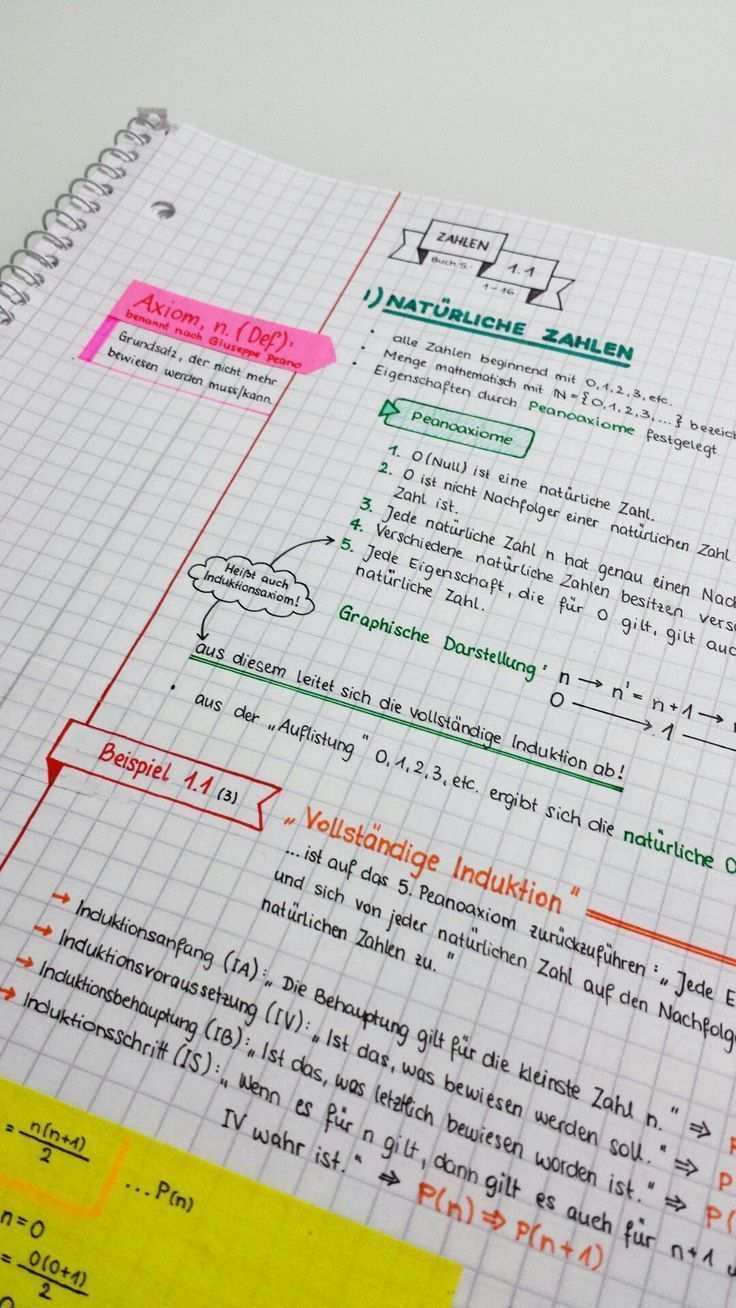 ZAHLEN
Buch S.
1.1
1-16
1) NATÜRLICHE ZAHLEN
Axiom, n. (Def):
benannt nach Giuseppe Peano
Grundsatz, der nicht mehr
bewiesen werden muss/kann.
• alle Zahlen beginnend mit 0,1,2,3, etc.
• Menge mathematisch mit ℕ = {0,1,2,3,...} bezeich
• Eigenschaften durch Peanoaxiome festgelegt
Peanoaxiome
1. 0 (Null) ist eine natürliche Zahl.
2. 0 ist nicht Nachfolger einer natürlichen Zahl
Zahl ist.
3. Jede natürliche Zahl n hat genau einen Nach
4. Verschiedene natürliche Zahlen besitzen versc
5. Jede Eigenschaft, die für 0 gilt, gilt auc
natürliche Zahl.
Heißt auch
Induktionsaxiom!
Graphische Darstellung: n → n' = n+1 →
0 → 1
aus diesem leitet sich die vollständige Induktion ab!
• aus der „Auflistung" 0,1,2,3, etc. ergibt sich die natürliche O
Beispiel 1.1 (3)
„Vollständige Induktion"
...ist auf das 5. Peanoaxiom zurückzuführen: „Jede E
und sich von jeder natürlichen Zahl auf den Nachfolge
natürlichen Zahlen zu."
→ Induktionsanfang (IA): „Die Behauptung gilt für die kleinste Zahl n." ⇒
→ Induktionsvoraussetzung (IV): „Ist das, was bewiesen werden soll." ⇒ P
→ Induktionsbehauptung (IB): „Ist das, was letztlich bewiesen worden ist." ⇒ P(
→ Induktionsschritt (IS): „Wenn es für n gilt, dann gilt es auch für n+1
IV wahr ist." ⇒ P(n) ⇒ P(n+1)
= n(n+1)/2 ...P(n)
n=0
= 0(0+1)/2